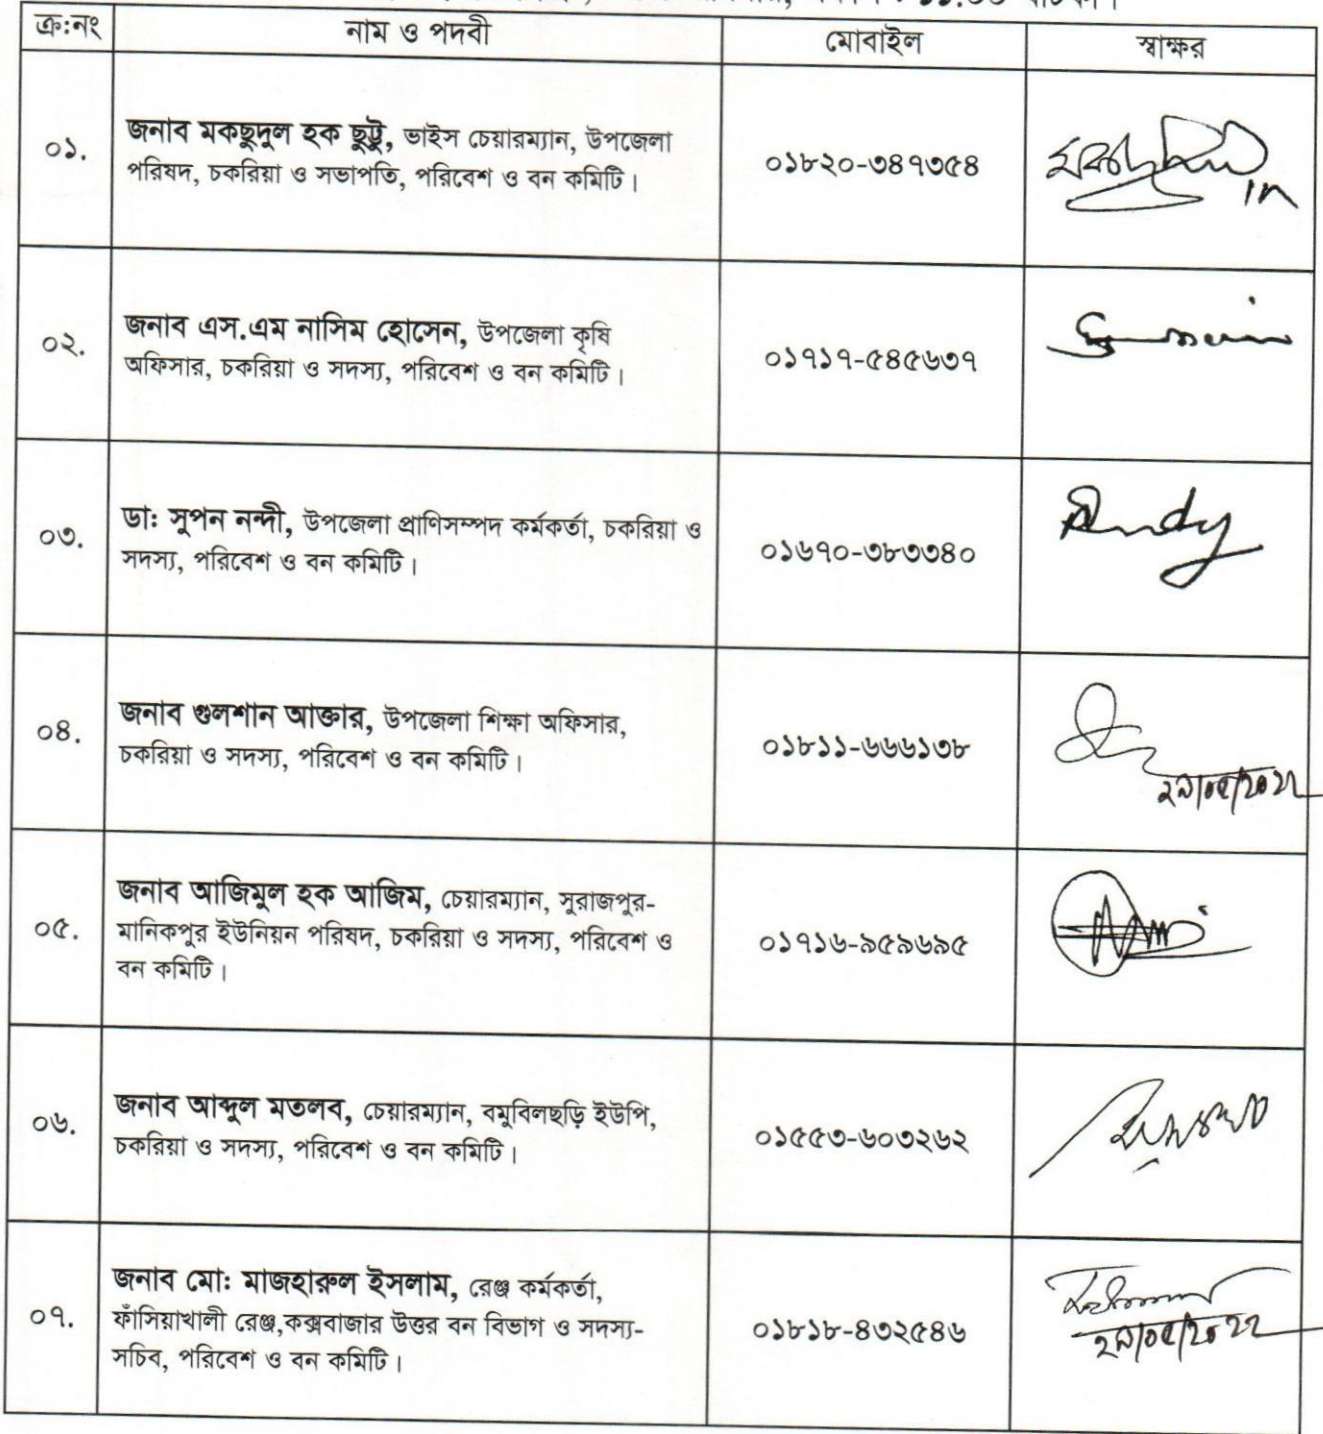 ক্র:নং
নাম ও পদবী
মোবাইল
স্বাক্ষর
০১.
জনাব মকছুদুল হক ছুট্টু, ভাইস চেয়ারম্যান, উপজেলা
পরিষদ, চকরিয়া ও সভাপতি, পরিবেশ ও বন কমিটি।
০১৮২০-৩৪৭৩৫৪
০২.
জনাব এস.এম নাসিম হোসেন, উপজেলা কৃষি
অফিসার, চকরিয়া ও সদস্য, পরিবেশ ও বন কমিটি।
০১৭১৭-৫৪৫৬৩৭
০৩.
ডা: সুপন নন্দী, উপজেলা প্রাণিসম্পদ কর্মকর্তা, চকরিয়া ও
সদস্য, পরিবেশ ও বন কমিটি।
০১৬৭০-৩৮৩৩৪০
০৪.
জনাব গুলশান আক্তার, উপজেলা শিক্ষা অফিসার,
চকরিয়া ও সদস্য, পরিবেশ ও বন কমিটি।
০১৮১১-৬৬৬১৩৮
২৯/০৫/২০২২
০৫.
জনাব আজিমুল হক আজিম, চেয়ারম্যান, সুরাজপুর-
মানিকপুর ইউনিয়ন পরিষদ, চকরিয়া ও সদস্য, পরিবেশ ও
বন কমিটি।
০১৭১৬-৯৫৯৬৯৫
০৬.
জনাব আব্দুল মতলব, চেয়ারম্যান, বমুবিলছড়ি ইউপি,
চকরিয়া ও সদস্য, পরিবেশ ও বন কমিটি।
০১৫৫৩-৬০৩২৬২
০৭.
জনাব মো: মাজহারুল ইসলাম, রেঞ্জ কর্মকর্তা,
ফাঁসিয়াখালী রেঞ্জ,কক্সবাজার উত্তর বন বিভাগ ও সদস্য-
সচিব, পরিবেশ ও বন কমিটি।
০১৮১৮-৪৩২৫৪৬
২৯/০৫/২০২২